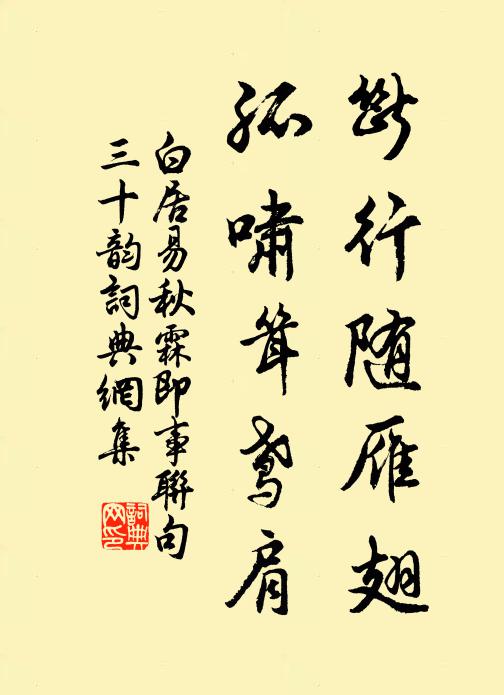 斷行随雁翅
孤嘯聳鳶肩
白居易秋霖即事聯句
三十韵詞典網集
詞典网印